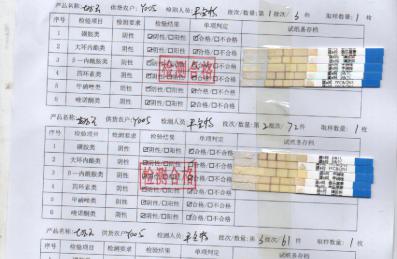 产品名称: 供货农户: Y005 检测人员: 批次/数量: 第1批次/ 件 取样数量: 1 枚
序号 检验项目 检测要求 检验结果 单项判定 试纸条存档
1 磺胺类 阴性 ☑阴性/□阳性 ☑合格/□不合格
2 大环内酯类 阴性 ☑阴性/□阳性 ☑合格/□不合格
3 β－内酰胺类 阴性 ☑阴性/□阳性 ☑合格/□不合格
4 四环素类 阴性 ☑阴性/□阳性 ☑合格/□不合格
5 甲硝唑类 阴性 ☑阴性/□阳性 ☑合格/□不合格
6 喹诺酮类 阴性 ☑阴性/□阳性 ☑合格/□不合格
检测合格
产品名称: 供货农户: Y005 检测人员: 批次/数量: 第2批次/72件 取样数量: 1 枚
序号 检验项目 检测要求 检验结果 单项判定 试纸条存档
1 磺胺类 阴性 ☑阴性/□阳性 ☑合格/□不合格
2 大环内酯类 阴性 ☑阴性/□阳性 ☑合格/□不合格
3 β－内酰胺类 阴性 ☑阴性/□阳性 ☑合格/□不合格
4 四环素类 阴性 ☑阴性/□阳性 ☑合格/□不合格
5 甲硝唑类 阴性 ☑阴性/□阳性 ☑合格/□不合格
6 喹诺酮类 阴性 ☑阴性/□阳性 ☑合格/□不合格
检测合格
产品名称: 供货农户: Y005 检测人员: 批次/数量: 第3批次/61件 取样数量: 1 枚
序号 检验项目 检测要求 检验结果 单项判定 试纸条存档